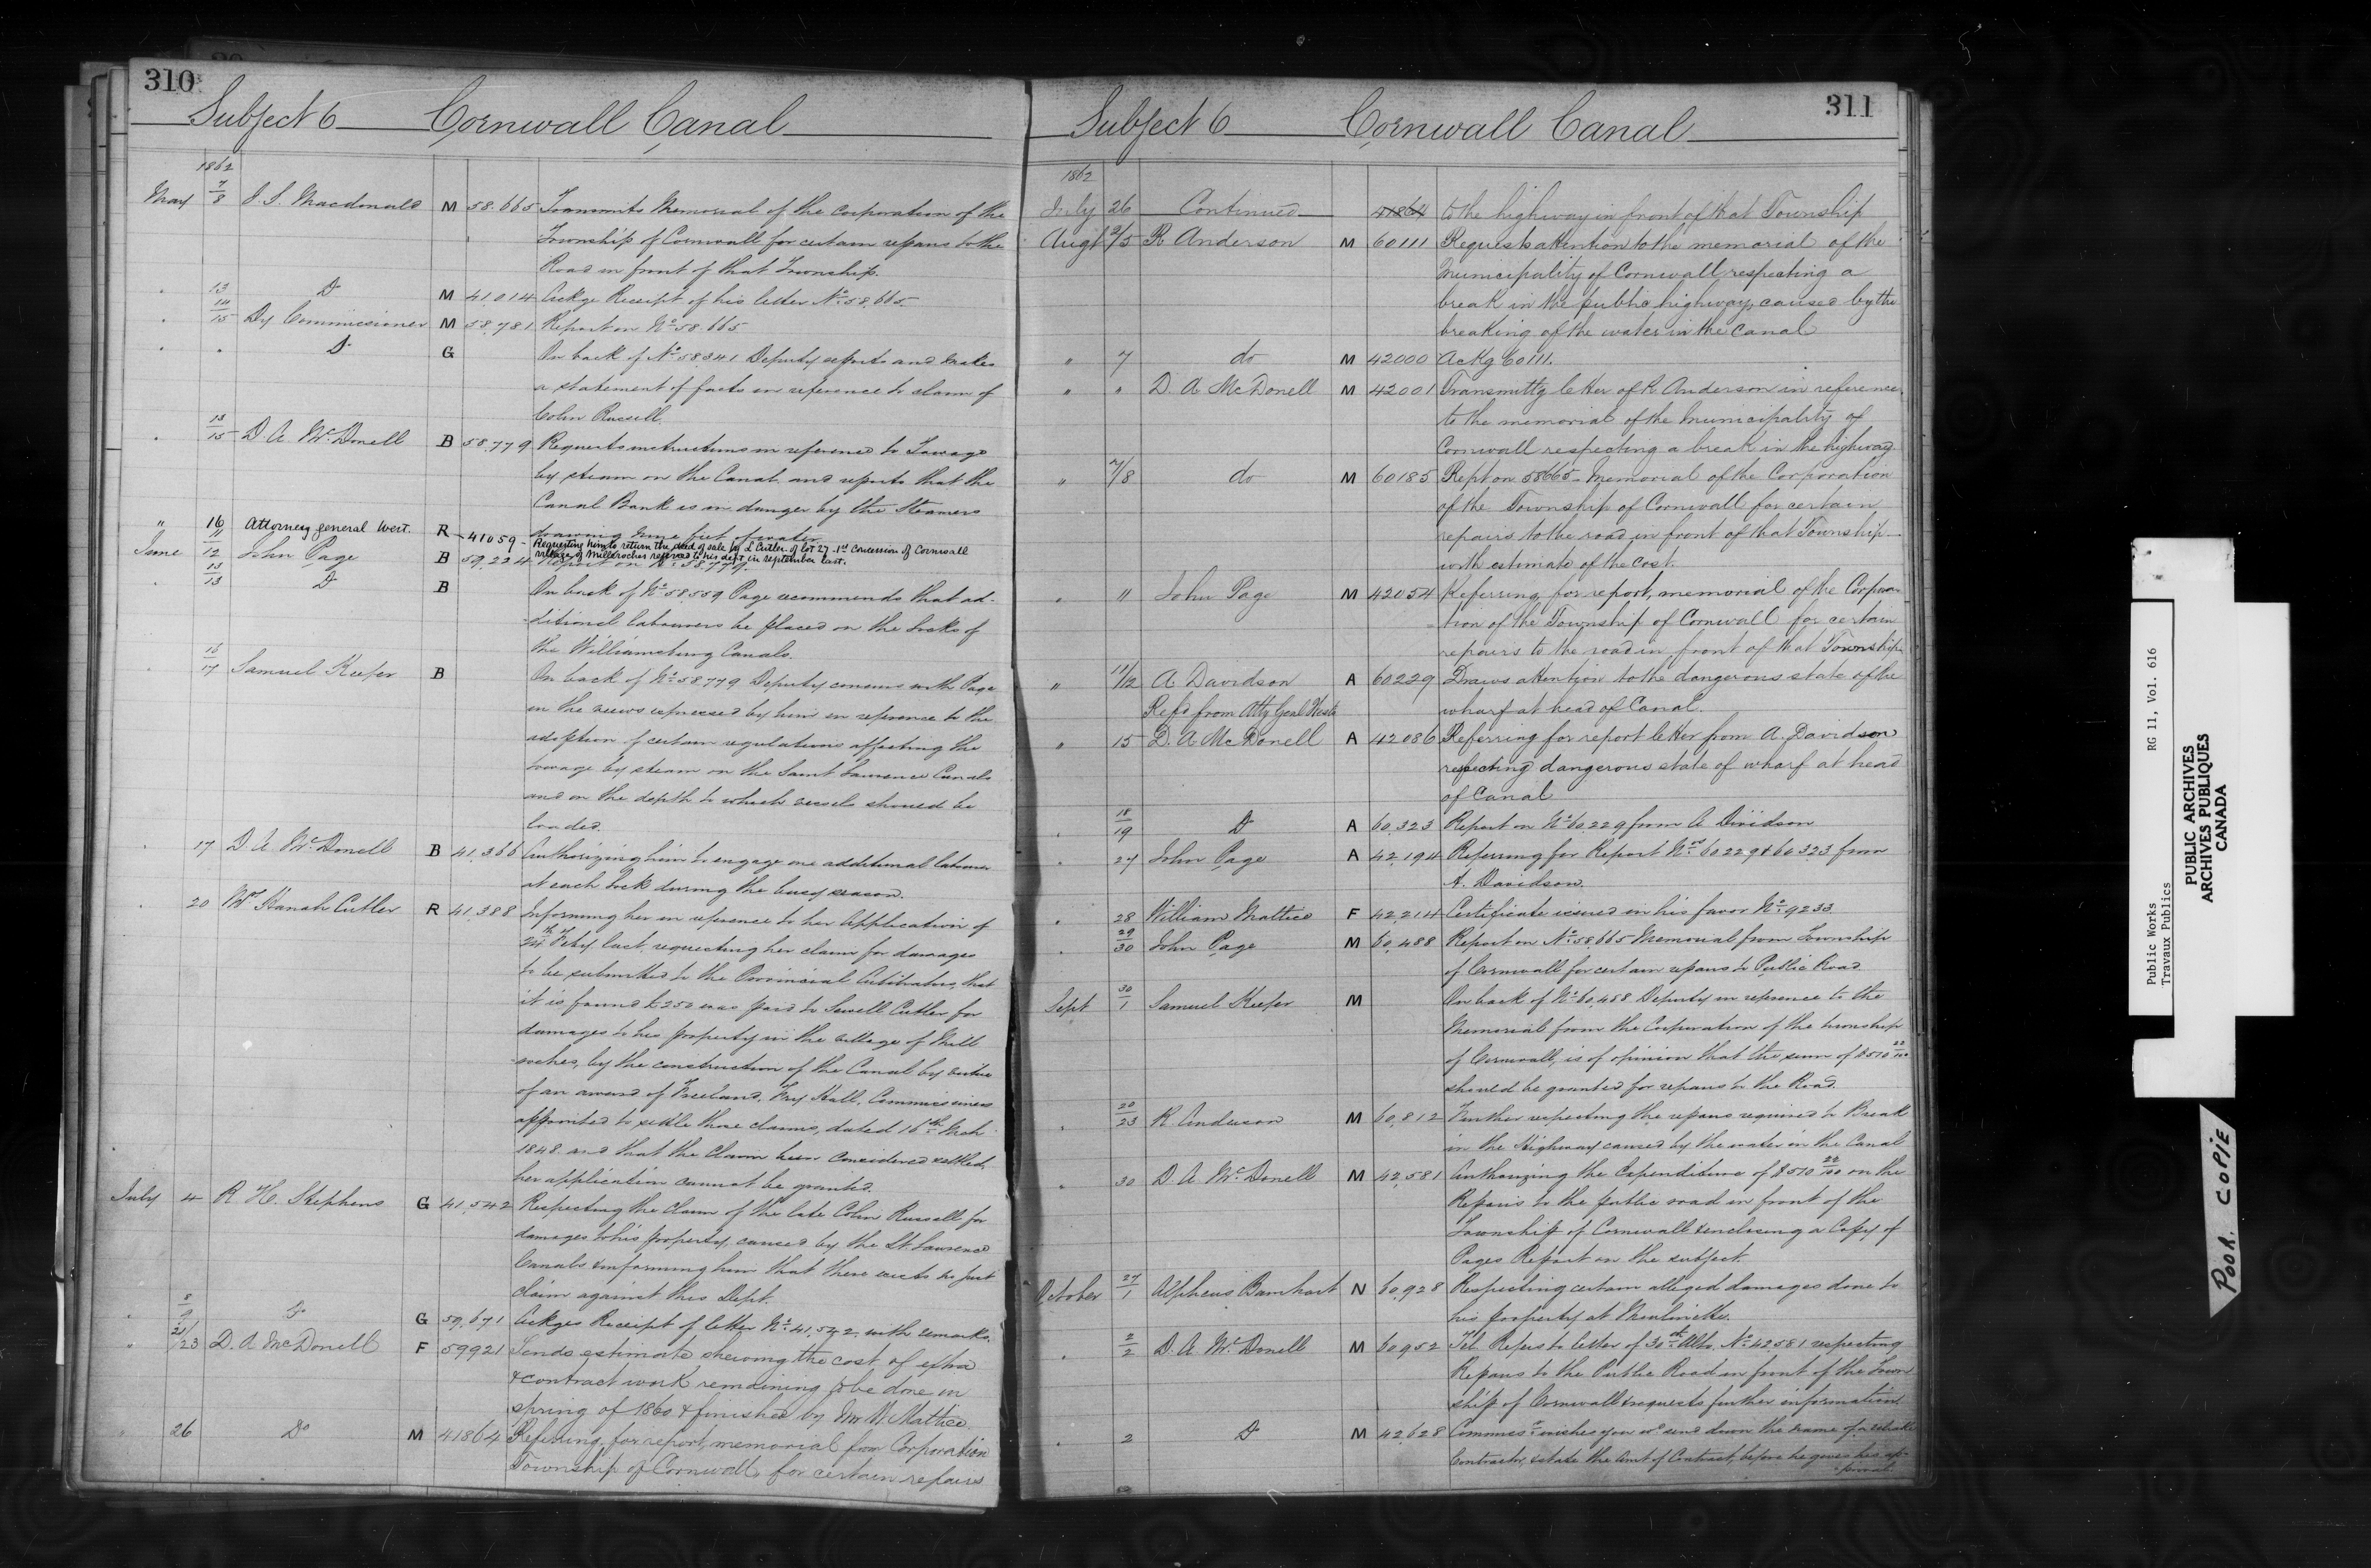 310
Subject 6 Cornwall Canal
1862
May 7/8 J. S. Macdonald M 58.665 Transmits Memorial of the Corporation of the
Township of Cornwall for certain repairs to the
Road in front of that Township.
" 13 Do M 41.014 Ackge Receipt of his letter No 58.665
" 14/15 Dy Commissioner M 58.781 Report on No 58.665
" " Do G On back of No 58341 Deputy reports and makes
a statement of facts in reference to claim of
Colin Russell.
" 13/15 D. A. McDonell B 58.779 Requests instructions in reference to Towage
by steam on the Canal and reports that the
Canal Bank is in danger by the Steamers
drawing nine feet of water
" 16 Attorney general West. R 41059 Requesting him to return the deed of sale by L Cutler of lot 27 - 1st Concession of Cornwall
village of Milleroches referred to his dept. in september last.
June 11/12 John Page B 59.224 Report on No 58.779.
" 13/13 Do B On back of No 58.559 Page recommends that ad-
ditional labourers be placed on the Locks of
the Williamsburg Canals.
" 16/17 Samuel Keefer B On back of No 58.779 Deputy concurs with Page
in the views expressed by him in reference to the
adoption of certain regulations affecting the
towage by steam on the Saint Lawrence Canals
and on the depth to which vessels should be
loaded.
" 17 D. A. McDonell B 41,366 Authorizing him to engage one additional labourer
at each lock during the busy season.
" 20 Mrs Hanah Cutler R 41,388 Informing her in reference to her Application of
24th Feby last, requesting her claim for damages
to be submitted to the Provincial Arbitrators, that
it is found £250 was paid to Sewell Cutler for
damages to his property in the village of Mill
roches, by the construction of the Canal by virtue
of an award of Freeland, Fry Hall, Commissioners
appointed to settle those claims, dated 16th Mch
1848 and that the Claim been considered settled,
her application cannot be granted.
July 4 R H. Stephens G 41,542 Respecting the Claim of the late Colin Russell for
damages to his property, caused by the St. Lawrence
Canals & informing him that there exists no just
claim against this Dept.
" 8/9 Do G 59,671 Ackges Receipt of letter No 41,542 with remarks.
" 21/23 D. A. McDonell F 59921 Sends estimate shewing the cost of extra
& contract work remaining to be done in
spring of 1860 & finished by Mr W. Mattice.
" 26 Do M 41864 Referring for report, memorial from Corporation
Township of Cornwall, for certain repairs
311
Subject 6 Cornwall Canal
1862
July 26 Continued 41864 to the highway in front of that Township
Augt 2/5 R Anderson M 60111 Requests attention to the memorial of the
Municipality of Cornwall respecting a
break in the public highway, caused by the
breaking of the water in the Canal
" 7 do M 42000 Ackg 60111.
" " D. A McDonell M 42001 Transmittg letter of R Anderson in reference
to the memorial of the Municipality of
Cornwall respecting a break in the highway
" 7/8 do M 60185 Rept on 58665 - Memorial of the Corporation
of the Township of Cornwall for certain
repairs to the road in front of that Township -
with estimate of the Cost.
" 11 John Page M 42054 Referring for report, memorial of the Corpora-
tion of the Township of Cornwall for certain
repairs to the road in front of that Township
" 11/12 A Davidson A 60229 Draws attention to the dangerous state of the
Refd from Atty Genl West wharf at head of Canal.
" 15 D. A McDonell A 42086 Referring for report letter from A. Davidson
respecting dangerous state of wharf at head
of Canal
" 18/19 Do A 60,323 Report on No 60,229 from A Davidson
" 27 John Page A 42,194 Referring for Report Nos 60229 & 60323 from
A. Davidson.
" 28 William Mattice F 42,214 Certificate issued in his favor No 9233.
" 29/30 John Page M 60,488 Report on No 58,665 Memorial from Township
of Cornwall for certain repairs to Public Road
Sept 30/1 Samuel Keefer M On back of No 60,488 Deputy in reference to the
Memorial from the Corporation of the township
of Cornwall, is of opinion that the sum of $510 22/100
should be granted for repairs to the Road.
" 20/23 R. Anderson M 60,812 Further respecting the repairs required to Break
in the Highway caused by the water in the Canal
" 30 D. A. McDonell M 42,581 Authorizing the Expenditure of $510 22/100 on the
Repairs to the public road in front of the
Township of Cornwall & enclosing a Copy of
Pages Report on the subject.
October 27/1 Alpheus Barnhart N 60,928 Respecting certain alleged damages done to
his property at Moulinette.
" 2/2 D. A. McDonell M 60,952 Tel. Refers to letter of 30th Ulto. No 42581 respecting
Repairs to the Public Road in front of the Town
ship of Cornwall & requests further information
" 2 Do M 42,628 Commissr wishes you wd send down the name of a reliable
Contractor, & state the Amt of Contract, before he gives his ap-
proval.
Public Works RG 11, Vol. 616
Travaux Publics
PUBLIC ARCHIVES
ARCHIVES PUBLIQUES
CANADA
POOR. COPIE